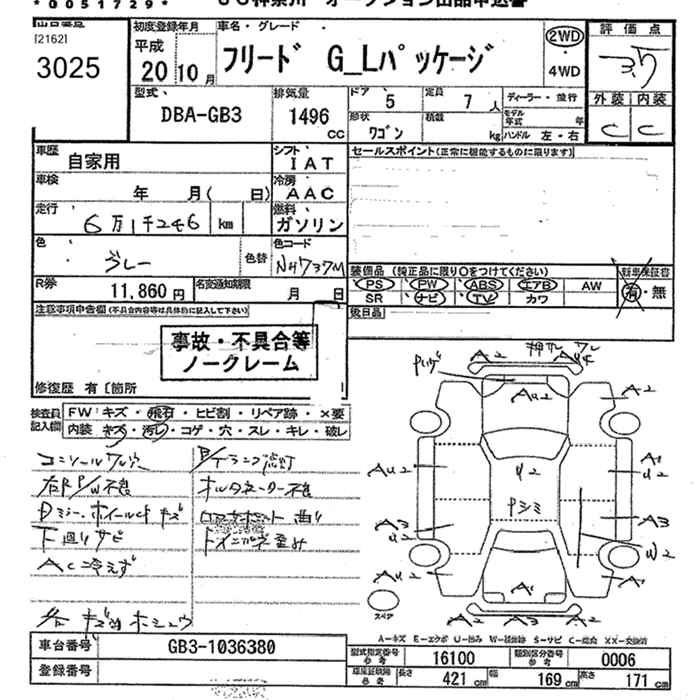 *0051729*
[2162]
3025
初度登録年月
平成
20 10月
車名・グレード
フリード G_Lパッケージ
2WD
・
4WD
評価点
3.5
外装 内装
C C
型式
DBA-GB3
排気量
1496
CC
ドア 5
定員 7人
形状 ワゴン
積載 kg
ディーラー・並行
モデル年式 年
ハンドル 左・右
車歴 自家用
シフト IAT
車検 年 月( 日)
冷房 AAC
走行 6万1千246 km
燃料 ガソリン
色 グレー 色替
色コード NH737M
R券 11,860円
名変通知期限 月 日
セールスポイント(正常に機能するものに限ります)
装備品(純正品に限り○をつけてください)
PS PW ABS エアB AW
SR ナビ TV カワ
新車保証書
有・無
後日品
注意事項申告欄(不具合内容等は具体的に記入して下さい)
事故・不具合等
ノークレーム
修復歴 有〔箇所
検査員
記入欄
FW キズ・飛石・ヒビ割・リペア跡・×要
内装 キズ・汚レ・コゲ・穴・スレ・キレ・破レ
コンソールワレ穴
右RP/W不良
Dミラー、ホイールcf キズ
下廻りサビ
ACひえず
オルタネーター不良
A2
A2
A2
A1
A3
A3
U2
W2
A1
スペア
A1
A2 A2 A2
A-キズ E-エクボ U-凹み W-補修跡 S-サビ C-腐食 XX-交換済
車台番号 GB3-1036380
登録番号
型式指定番号 参考 16100
類別区分番号 参考 0006
車庫証明用 参考
長さ 421 cm
幅 169 cm
高さ 171 cm